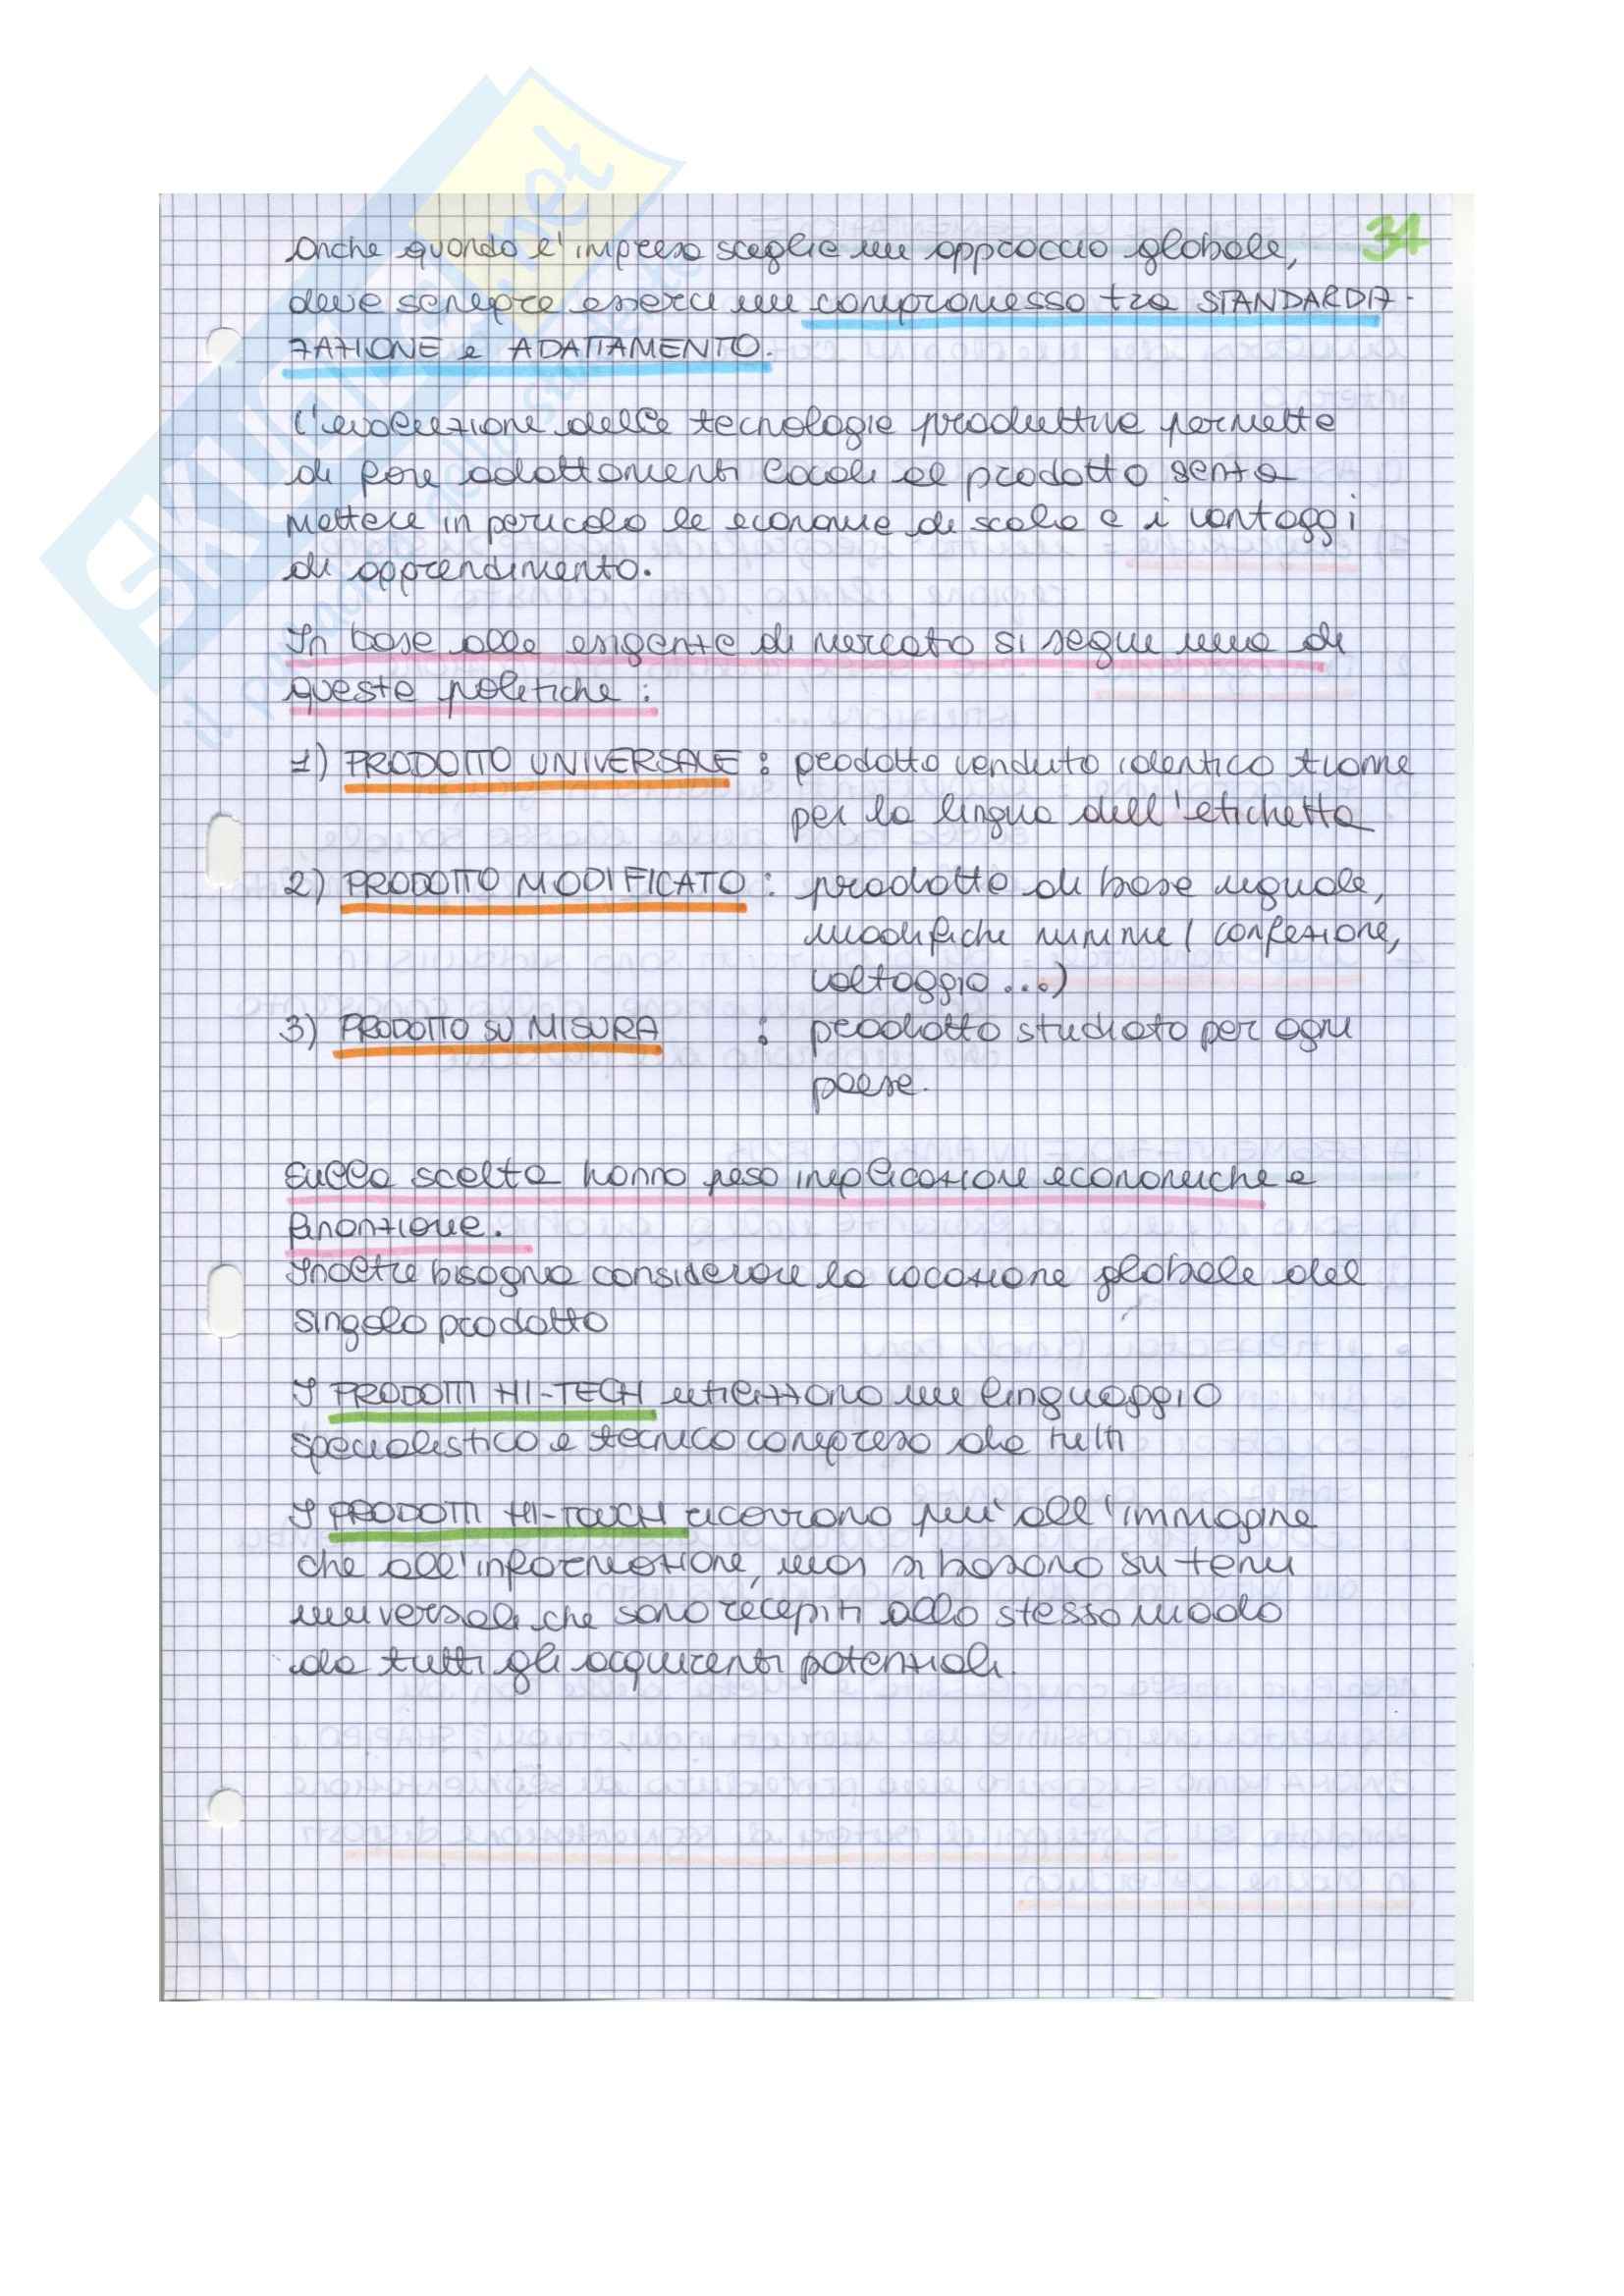 34
Anche quando l'impresa sceglie un approccio globale,
deve sempre esserci un compromesso tra STANDARDIZ-
ZAZIONE e ADATTAMENTO.
L'evoluzione delle tecnologie produttive permette
di fare adattamenti locali al prodotto senza
mettere in pericolo le economie di scala e i vantaggi
di apprendimento.
In base alle esigenze di mercato si segue una di
queste politiche:
1) PRODOTTO UNIVERSALE : prodotto venduto identico tranne
per la lingua dell'etichetta
2) PRODOTTO MODIFICATO : prodotto di base uguale,
modifiche minime (confezione,
voltaggio...)
3) PRODOTTO SU MISURA : prodotto studiato per ogni
paese.
Sulla scelta hanno peso implicazioni economiche e
finanziarie.
Inoltre bisogna considerare la vocazione globale del
singolo prodotto
I PRODOTTI HI-TECH utilizzano un linguaggio
specialistico e tecnico compreso da tutti
I PRODOTTI HI-TOUCH ricorrono più all'immagine
che all'informazione, ma si basano su temi
universali che sono recepiti allo stesso modo
da tutti gli acquirenti potenziali.